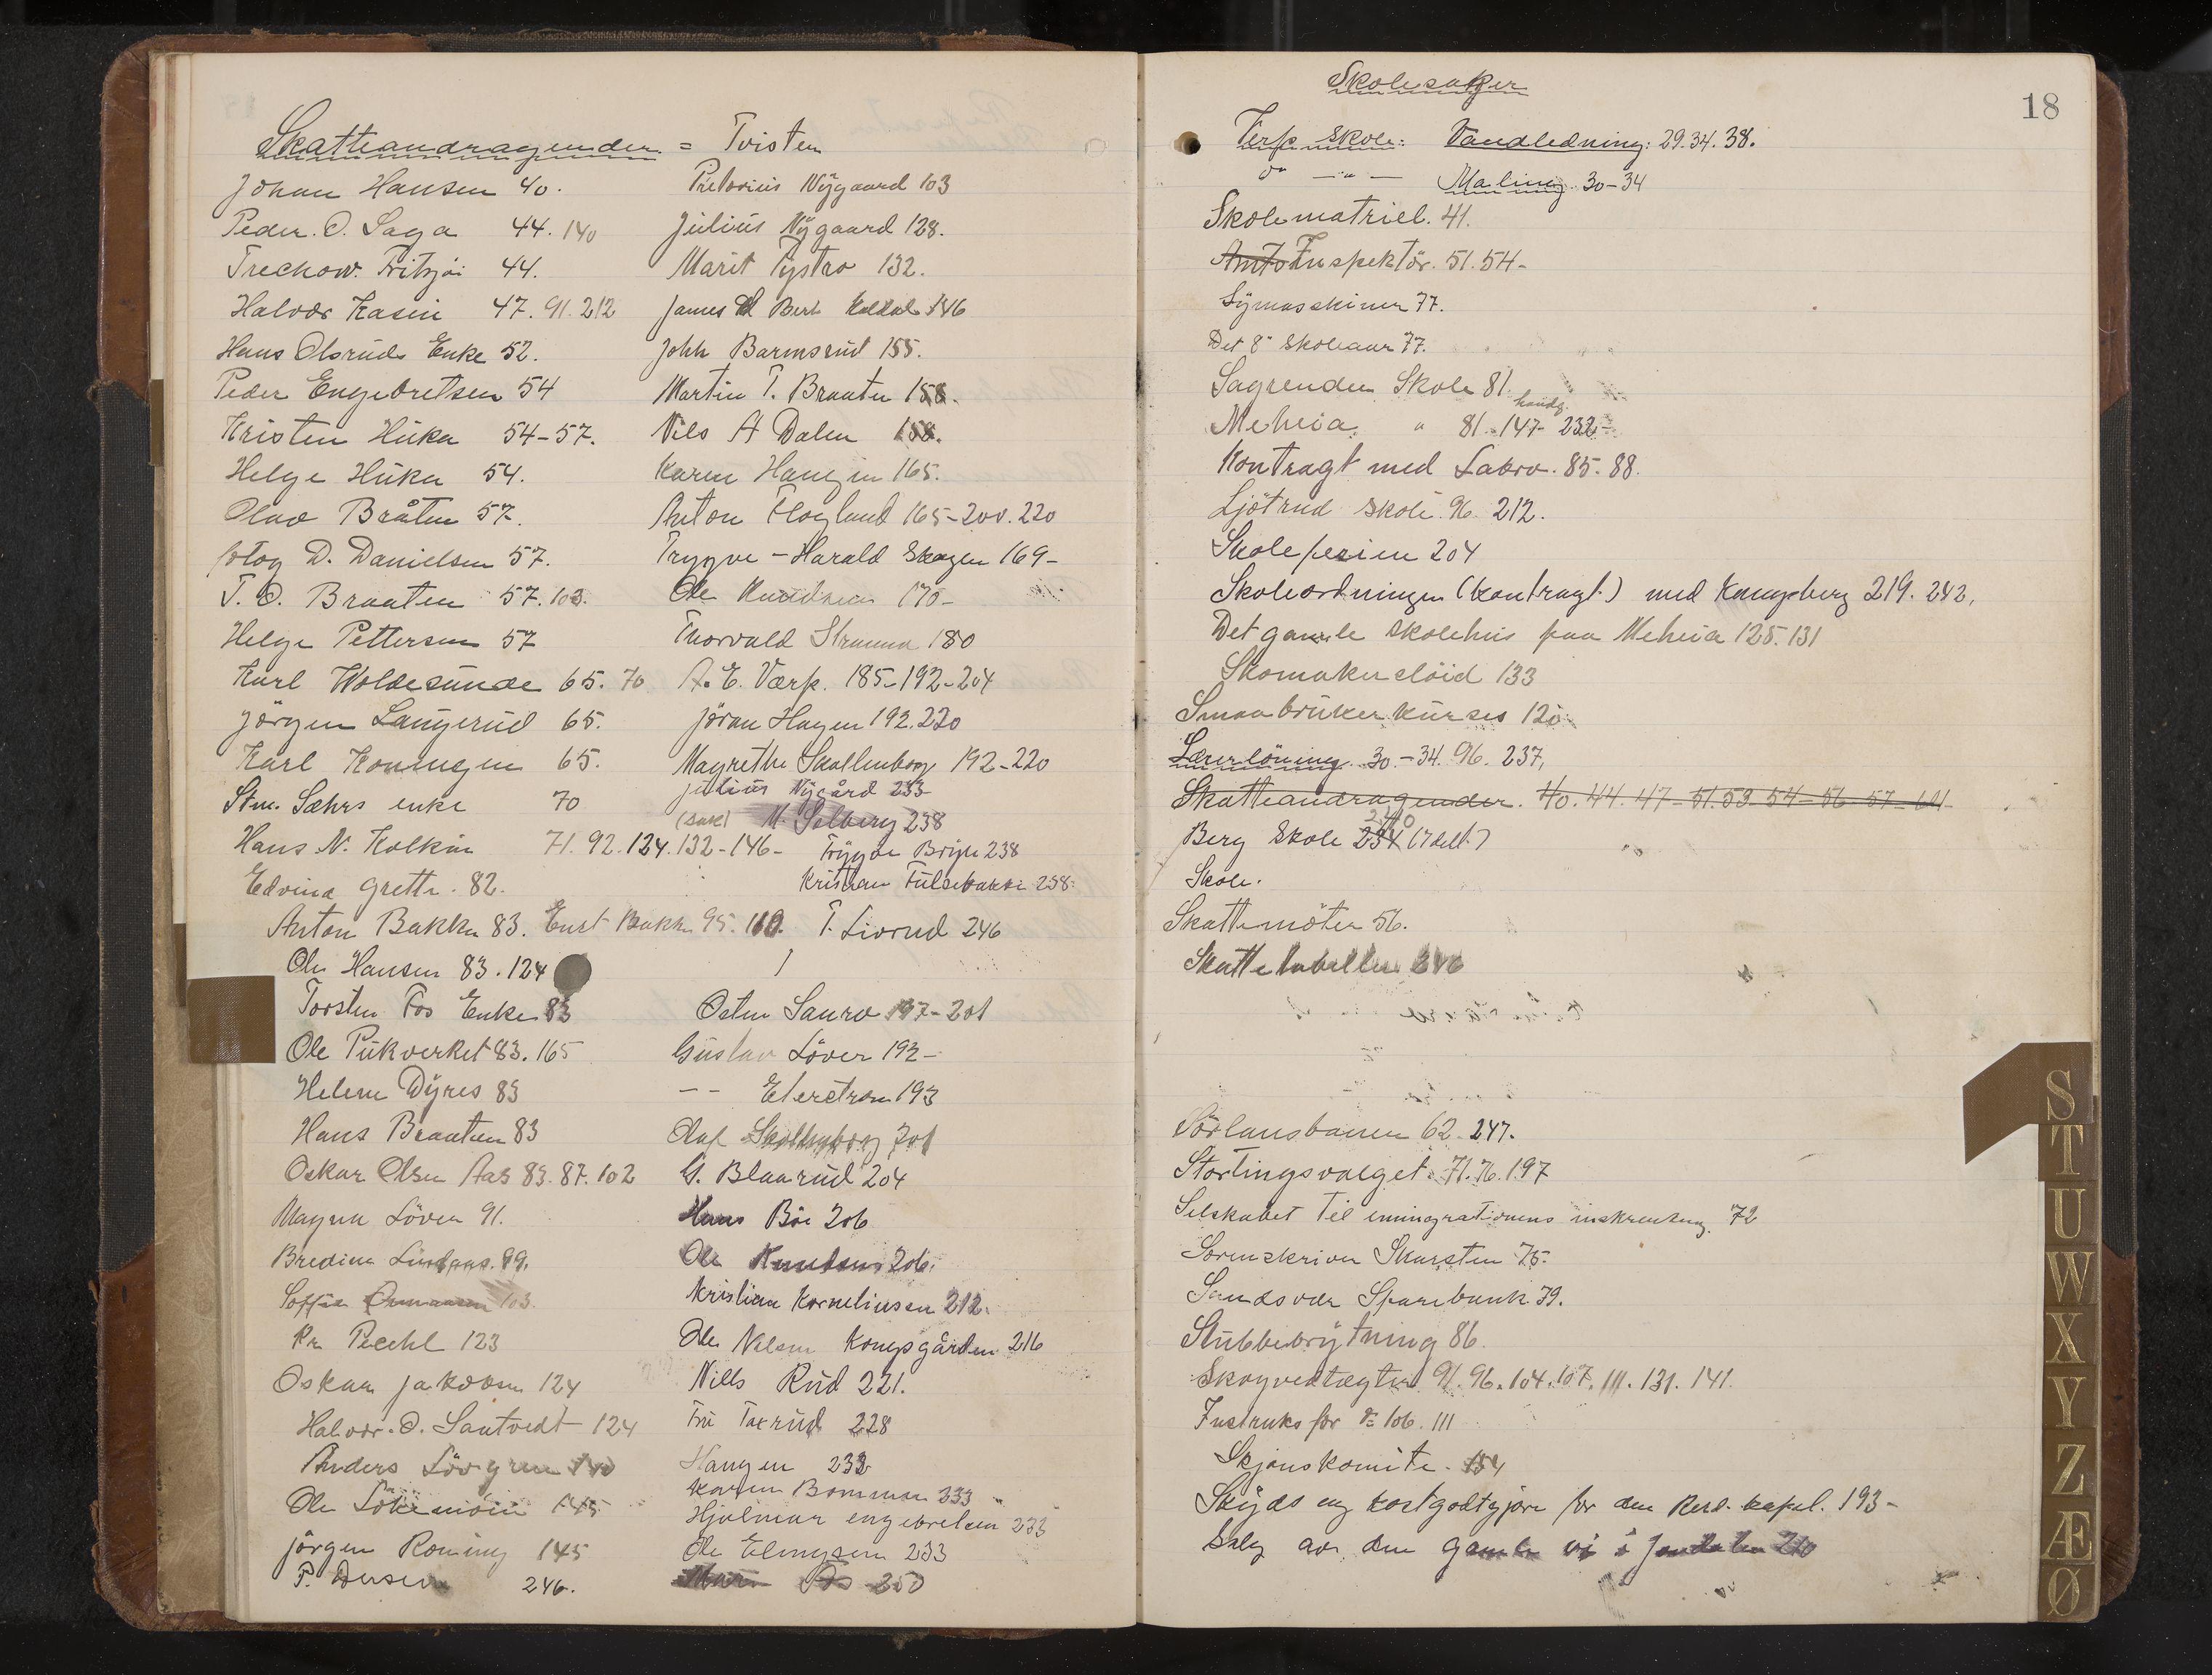 Skatteandragender = Tvisten
Johan Hansen 40.
Peder. O. Saga 44. 140
Treschow. Fritzöi 44.
Halvor Kasin 47. 91. 212
Hans Olsruds Enke 52.
Peder Engebretsen 54
Kristen Huka 54-57.
Helge Huka 54.
Olav Bråten 57.
fotog D. Danielsen 57.
T. O. Braaten 57. 103.
Helge Pettersen 57
Karl Woldesunde 65. 70
Jörgen Langerud 65.
Karl Koningen 65.
Stm. Sæhrs enke 70
Hans N. Kolkin 71. 92. 124. 132-146-
Edvina Grette. 82.
Anton Bakke 83. Enst Bakke 95. 110.
Ole Hansen 83. 124
Torsten Fos Enke 83
Ole Pukverket 83. 165
Helene Dyres 83
Hans Braaten 83
Oskar Olsen Aas 83. 87. 102
Magna Löver 91.
Bredine 99.
Soffie 103.
Kr. Pechl 123
Oskar Jakobsen 124
Halvor. O. Santvedt 124
Anders Lövgren 140
Ole Lökemoin 145
Jörgen Roning 145
P. 246.
Pretorius Nygaard 103
Julius Nygaard 128.
Marit 132.
James Bert 146
Johh Barmsrud 155.
Martin T. Braaten 158.
Nils A Dalen 158.
Karen Haugen 165.
Anton Flogland 165-200. 220
Trygve - Harald Skogen 169-
Ole Knudsen 170-
Thorvald 180
A. E. Værp. 185-192-204
Jöran Hagen 192. 220
Magrethe Skollenborg 192-220
Julius Nygård 233
(Sak) M. Solberg 238
Trygve 238
Kristian Fulsebakke 238.
T. Livrud 246
Osten Sauro 197-201
Gustav Löver 192-
-- Eterstrom 193
Olaf Skollenborg 201
G. Blaarud 204
Hans Böe 206
Ole Knudsen 206.
Kristian Korneliusen 212.
Ole Nelsen Kongsgården 216
Nills Rud 221.
Fru Taxrud 228
Haugen 233
Karen Bommen 233
Hjalmar engebretsen 233
Ole Elingsen 233
250
18
Skolesaker
Verp. skole: Vandledning: 29. 34. 38.
do —"— Maling 30-34
Skolematriel. 41.
Amts Inspektör. 51. 54-
Symasskiner 77.
Det 8" skoleaar 77.
Sagrenden Skole 81.
handg.
Meheia " 81. 147- 232-
Kontragt med Labro. 85. 88.
Ljötrud skole. 96. 212.
Skoleferien 204
Skoleordningen (kontragt) med Kongsberg 219. 242,
Det gamle skolehus paa Meheia 125. 131
Skomakerslöid 133
Smaabrukerkurses 120
Lærerlöning 30-34. 96. 237,
Skatteandragender. 40. 44. 47-51. 53-54-56-57-61
240
Berg Skole 234 (7 delt)
Skole.
Skattemöter 56.
Skattetabellen 246
Sörlansbanen 62-247.
Stortingsvalget 71. 76. 197
Selskabet til emmigrationens inskrenkning 72
Sorenskriver Skarsten 75.
Sandsvær Sparebank 79.
Stubbebrytning 86
Skogvedtægter 91. 96. 104. 107. 111. 131. 141.
Instruks for do 106. 111
Skjönskomite. 154
Skyds og kostgodtgjöre for den Resd. kapel. 193-
Salg av den gamle vei i Jondalen 210
S
T
U
W
X
Y
Z
Æ
Ø